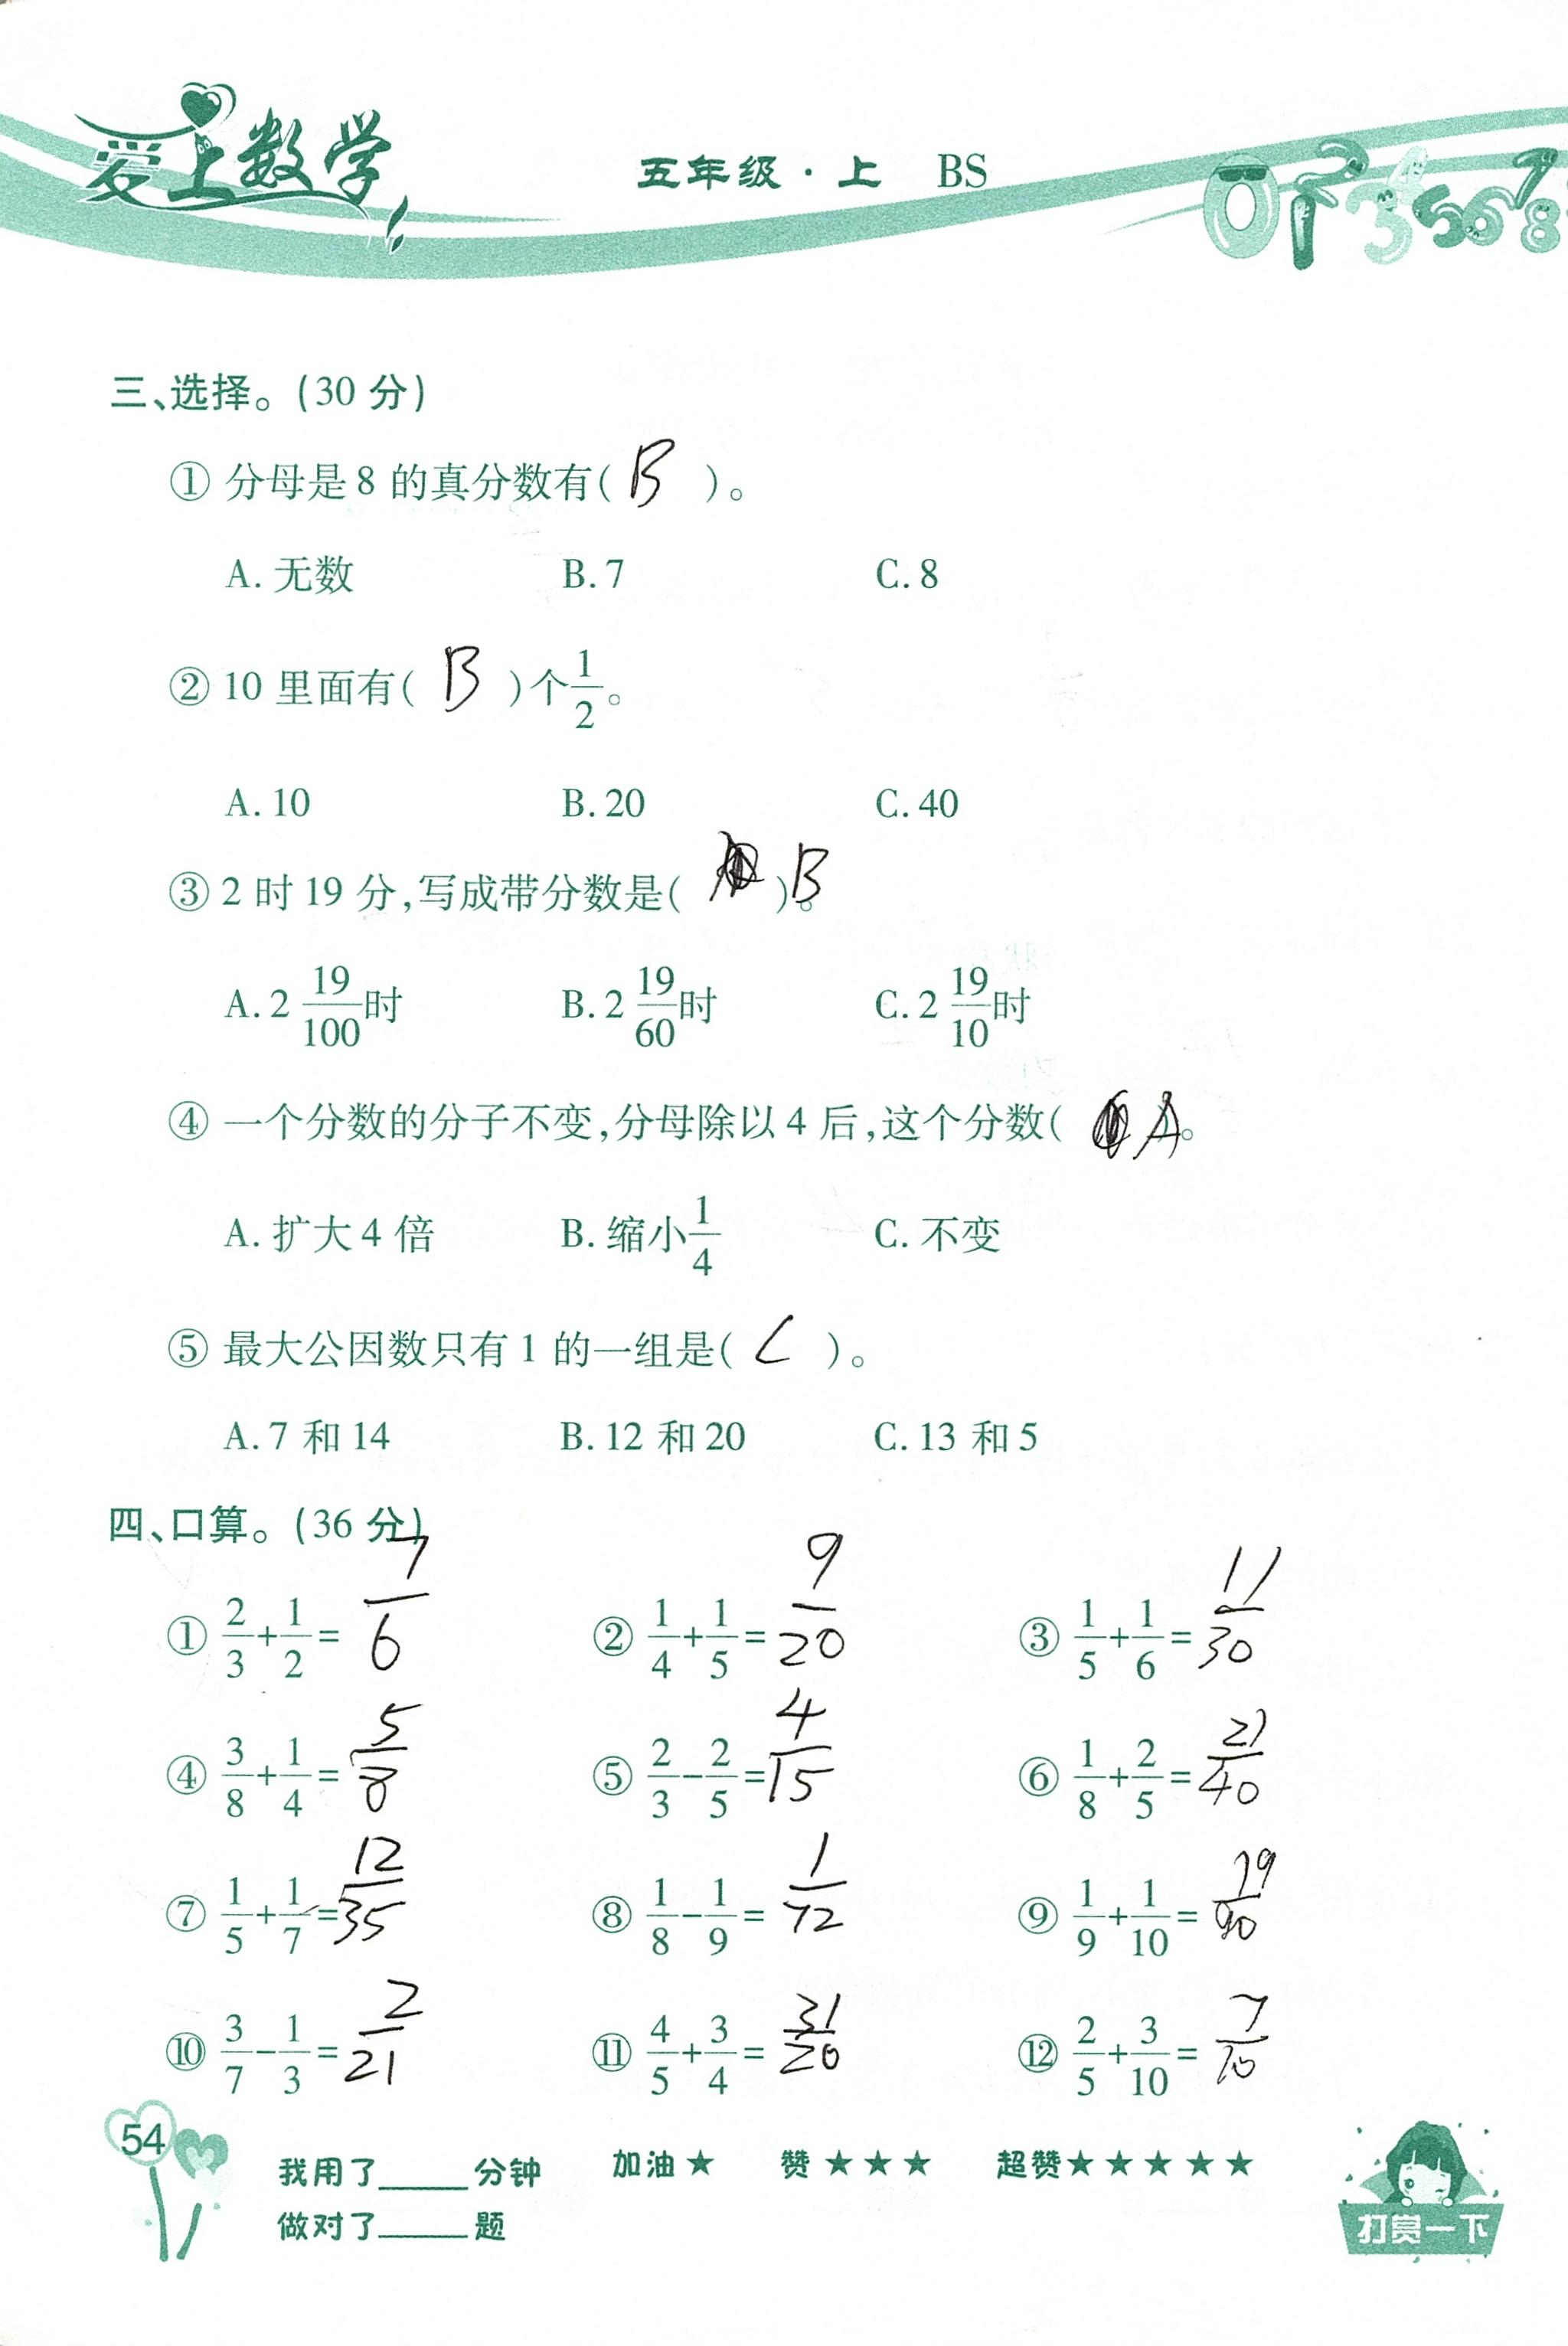 爱上数学 五年级·上 BS
三、选择。(30 分)
① 分母是 8 的真分数有( B )。
A. 无数 B. 7 C. 8
② 10 里面有( B )个1/2。
A. 10 B. 20 C. 40
③ 2 时 19 分,写成带分数是( )B。
A. 2 19/100时 B. 2 19/60时 C. 2 19/10时
④ 一个分数的分子不变,分母除以 4 后,这个分数( A )。
A. 扩大 4 倍 B. 缩小1/4 C. 不变
⑤ 最大公因数只有 1 的一组是( C )。
A. 7 和 14 B. 12 和 20 C. 13 和 5
四、口算。(36 分)
① 2/3+1/2= 7/6 ② 1/4+1/5= 9/20 ③ 1/5+1/6= 11/30
④ 3/8+1/4= 5/8 ⑤ 2/3-2/5= 4/15 ⑥ 1/8+2/5= 21/40
⑦ 1/5+1/7= 12/35 ⑧ 1/8-1/9= 1/72 ⑨ 1/9+1/10= 19/90
⑩ 3/7-1/3= 2/21 ⑪ 4/5+3/4= 31/20 ⑫ 2/5+3/10= 7/10
54
我用了____分钟 加油★ 赞★★★ 超赞★★★★★
做对了____题 打赏一下